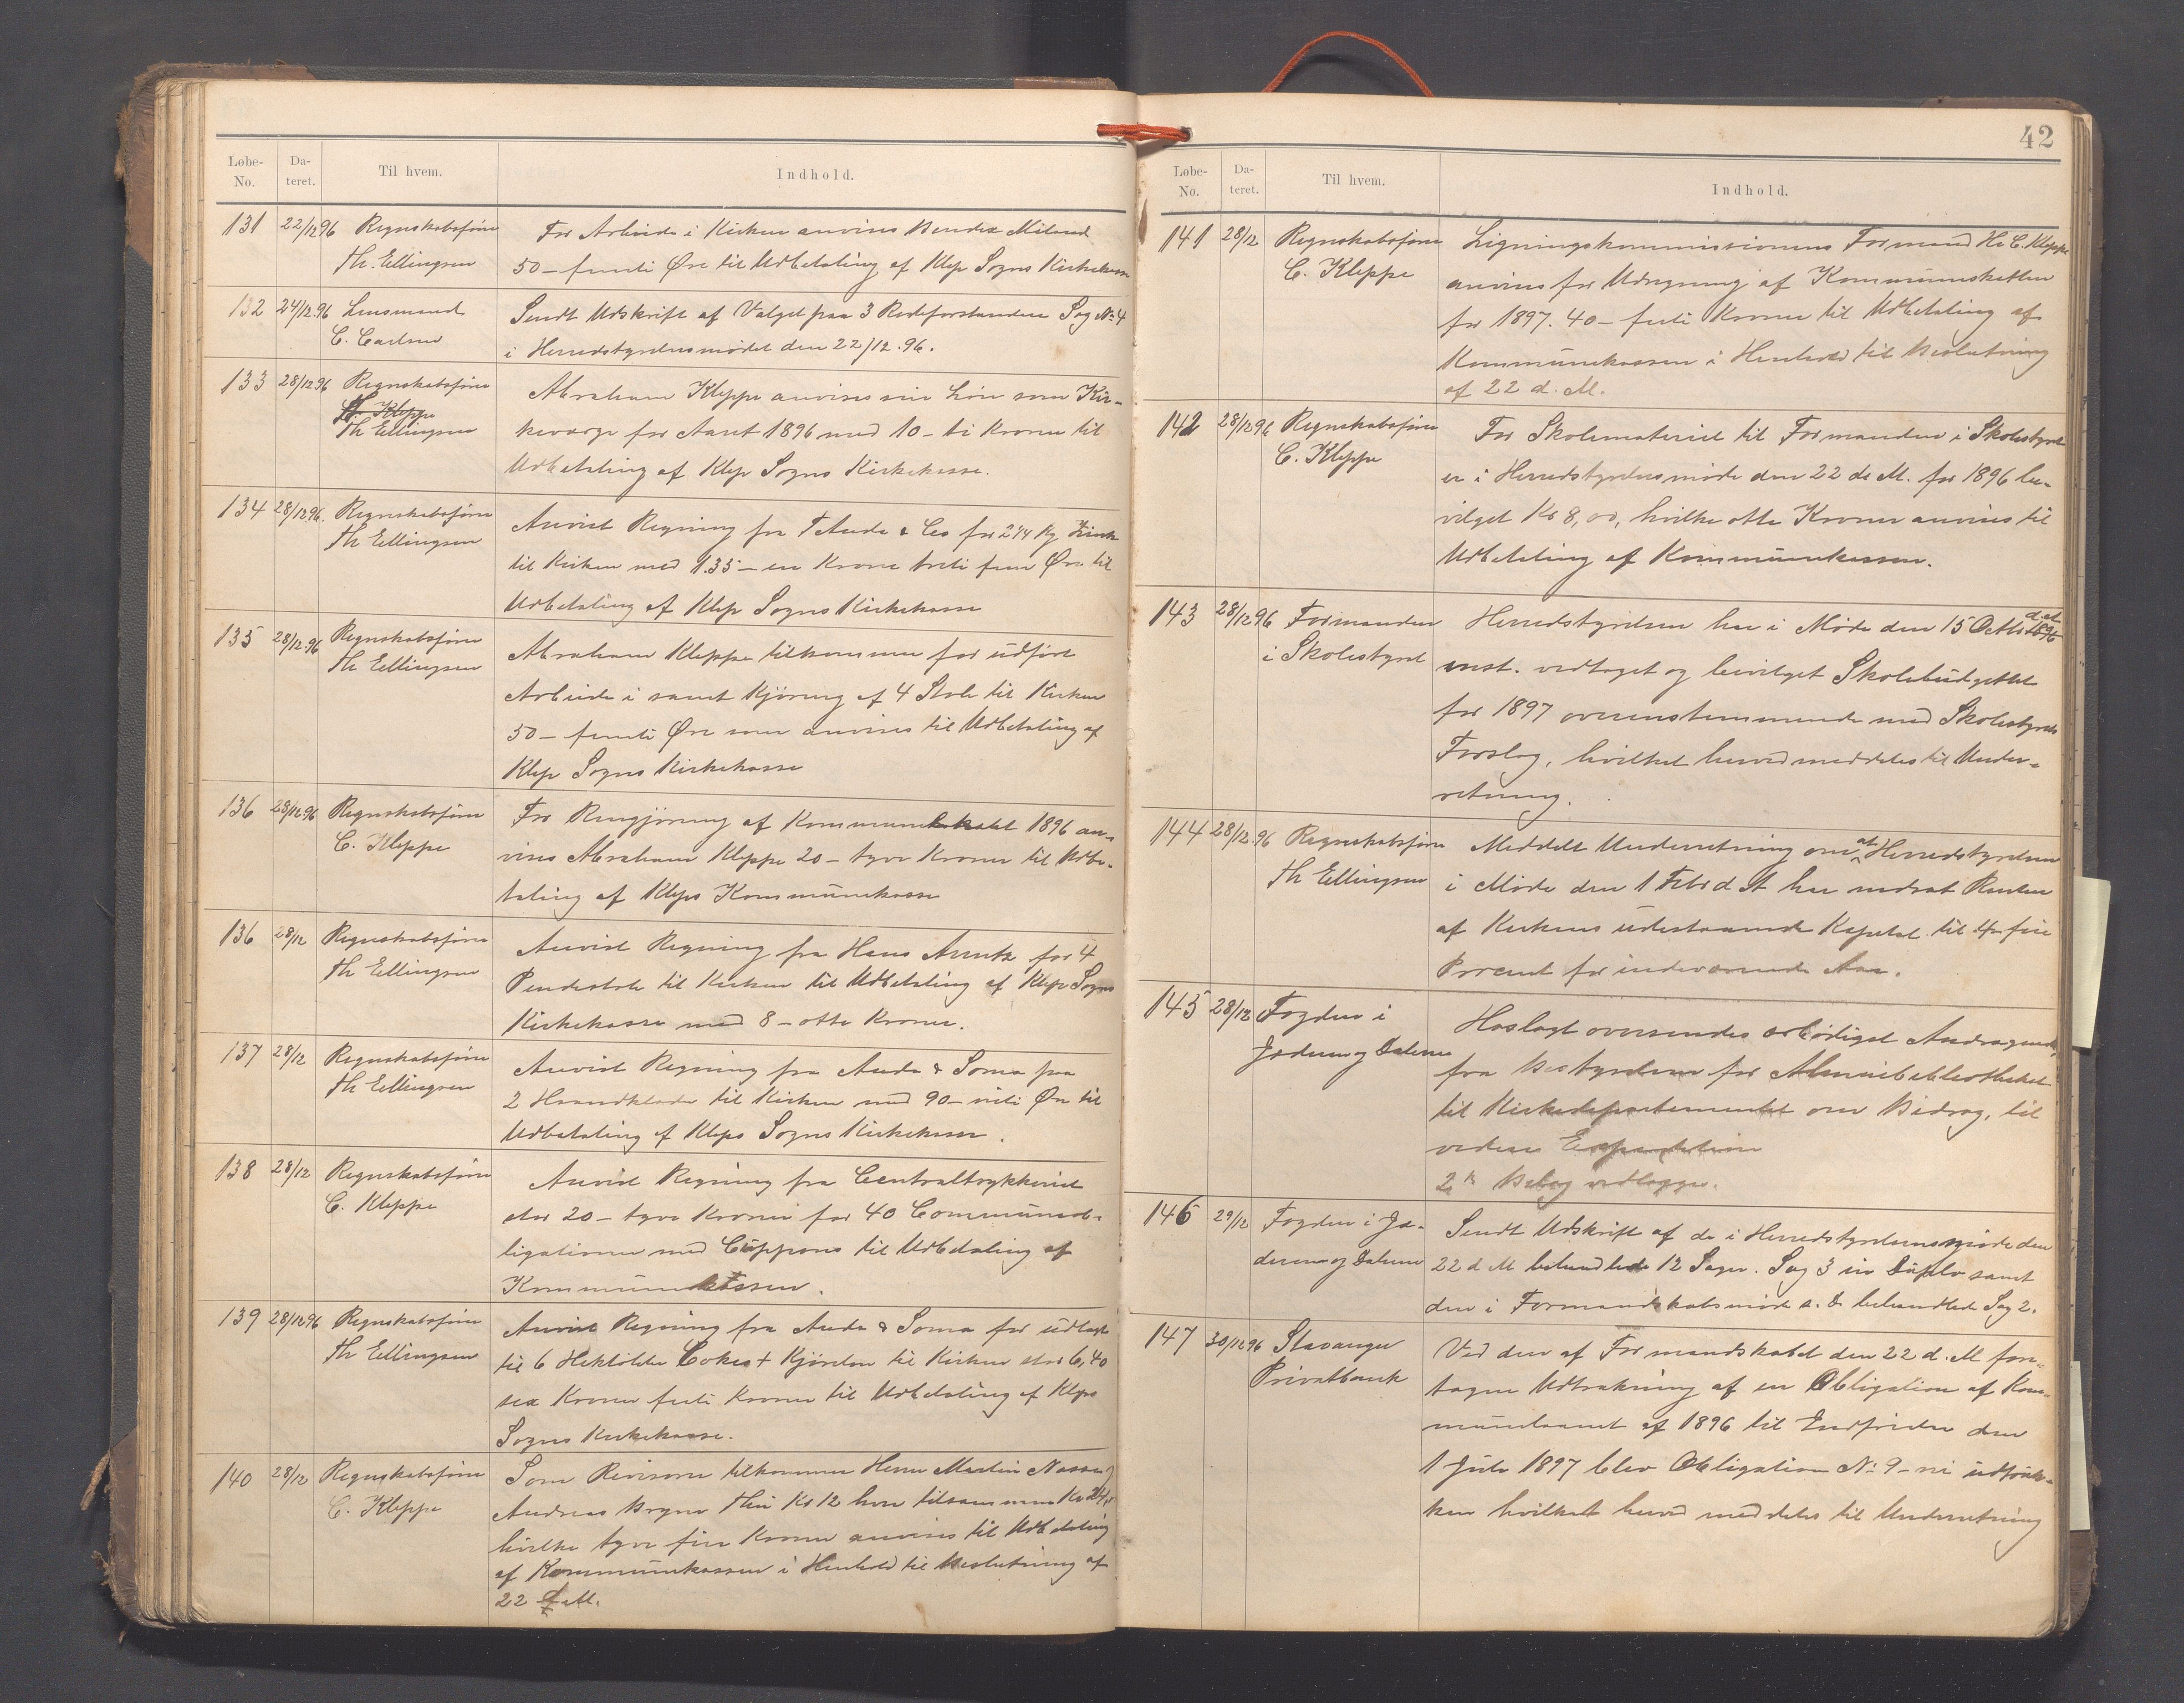 Løbe-No. Da-teret. Til hvem. Indhold.
131 22/12 96 Regnskabsfører For Arbeide i Kirken anvises Bendix Mileud
Th. Ellingsen 50 – femti Øre til Udbetaling af Klep Sogns Kirkekasse
132 24/12.96 Lensmand Sendt Udskrift af Valget paa 3 Rodeforstandere Sag No 4
C. Carlsen i Herredstyrelsesmødet den 22/12.96.
133 28/12 96 Regnskabsfører Abraham Kleppe anvises sin Løn som Kir-
C. Kleppe
Th Ellingsen keværge for Aaret 1896 med 10 – ti Kroner til
Udbetaling af Klep Sogns Kirkekasse.
134 28/12 96. Regnskabsfører Anvist Regning fra T Aude & Co for 2 1/4 Kg Zink
Th Ellingsen til Kirken med 1.35 – en Krone treti fem Øre til
Udbetaling af Klep Sogns Kirkekasse
135 28/12.96 Regnskabsfører Abraham Kleppe tilkommer for udført
Th Ellingsen Arbeide i samt Kjøring af 4 Stole til Kirken
50 – femti Øre som anvises til Udbetaling af
Klep Sogns Kirkekasse
136 28/12.96 Regnskabsfører For Rengjøring af Kommunelokalet 1896 an-
C. Kleppe vises Abraham Kleppe 20 – tyve Kroner til Udbe-
taling af Kleps Kommunekasse
136 28/12 Regnskabsfører Anvist Regning fra Hans Arentz for 4
Th Ellingsen Pindestole til Kirken til Udbetaling af Klep Sogns
Kirkekasse med 8 – otte Kroner.
137 28/12 Regnskabsfører Anvist Regning fra Aude & Soma paa
Th Ellingsen 2 Haandklæder til Kirken med 90 – niti Øre til
Udbetaling af Kleps Sogns Kirkekasse.
138 28/12 Regnskabsfører Anvist Regning fra Centraltrykkeriet
C. Kleppe stor 20 – tyve Kroner for 40 Communeob-
ligationer med Cuppons til Udbetaling af
Kommunekassen.
139 28/12 96 Regnskabsfører Anvist Regning fra Aude & Soma for udlagt
Th Ellingsen til 6 Hektoliter Cokes + Kjørelon til Kirken stor 6,40
sex Kroner firti Kroner til Udbetaling af Kleps
Sogns Kirkekasse.
140 28/12 Regnskabsfører Som Revisorer tilkommer Herrer Martin Nasse og
C. Kleppe Andreas Bryne Thu Kr 12 hver tilsammen Kr 24,
hvilke tyve fire Kroner anvises til Udbetaling
af Kommunekassen i Henhold til Beslutning af
22 d. M.
42
Løbe-No. Da-teret. Til hvem. Indhold.
141 28/12 Regnskabsfører Ligningskommissionens Formand Hr C. Kleppe
C. Kleppe anvises for Udregning af Kommuneskatten
for 1897. 40 – firti Kroner til Udbetaling af
Kommunekassen i Henhold til Beslutning
af 22 d. M.
142 28/12 96 Regnskabsfører For Skolemateriel til Formanden i Skolestyret
C. Kleppe er i Herredstyrelsesmøde den 22 de M. for 1896 be-
vilget Kr 8,00, hvilke otte Kroner anvises til
Udbetaling af Kommunekassen.
143 28/12 96 Formanden Herredstyrelsen har i Møde den 15 Octbr 1896 d. at
i Skolestyret enst. vedtaget og bevilget Skolebudgettet
for 1897 overensstemmende med Skolestyrets
Forslag, hvilket herved meddeles til Under-
retning.
144 28/12.96 Regnskabsfører Meddelt Underretning om at Herredstyrelsen
Th Ellingsen i Møde den 1 Febr d A har nedsat Renten
af Kirkens udestaaende Kapital til 4 – fire
Procent for indeværende Aar.
145 28/12 Fogden i Hoslagt oversendes ærbødigst Andragende
Jæderen og Dalerne fra Bestyrelsen for Almuebibliotheket
til Kirkedepartementet om Bidrag, til
videre Expedition
2de Bilag vedlægges.
146 29/12 Fogden i Jæ- Sendt Udskrift af de i Herredstyrelsesmøde den
deren og Dalerne 22 d M behandlede 12 Sager. Sag 3 in Duplo samt
den i Formandskabsmøde s. D. behandlede Sag 2.
147 30/12 96 Stavanger Ved den af Formandskabet den 22 d. M fore-
Privatbank tagne Udtrækning af en Obligation af Kom-
munelaanet af 1896 til Indfrielse den
1 Juli 1897 blev Obligation No 9 – ni udtruk-
ken hvilket herved meddeles til Underretning